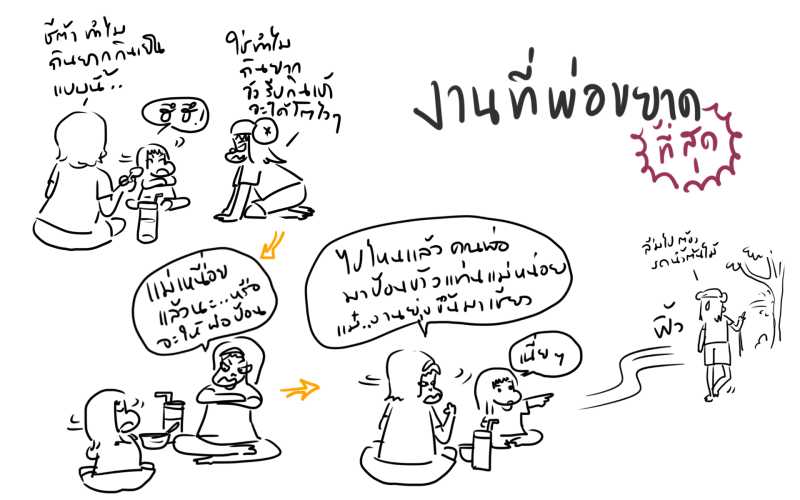 งานที่พ่อขยาด
ที่สุด
ชีต้า ทำไม
กินยากกินเย็น
แบบนี้..
ฮึ ฮึ!
ใช่ ทำไม
กินยาก
จะได้โตไวๆ
แม่เหนื่อย
แล้วนะ..หรือ
จะให้พ่อป้อน
ไปไหนแล้ว คนพ่อ
มาป้อนข้าวแทนแม่หน่อย
แม่..งานยุ่งขึ้นมาเชียว
เนี่ยๆ
ลืมไปต้อง
รดน้ำต้นไม้
ฟิ้ว